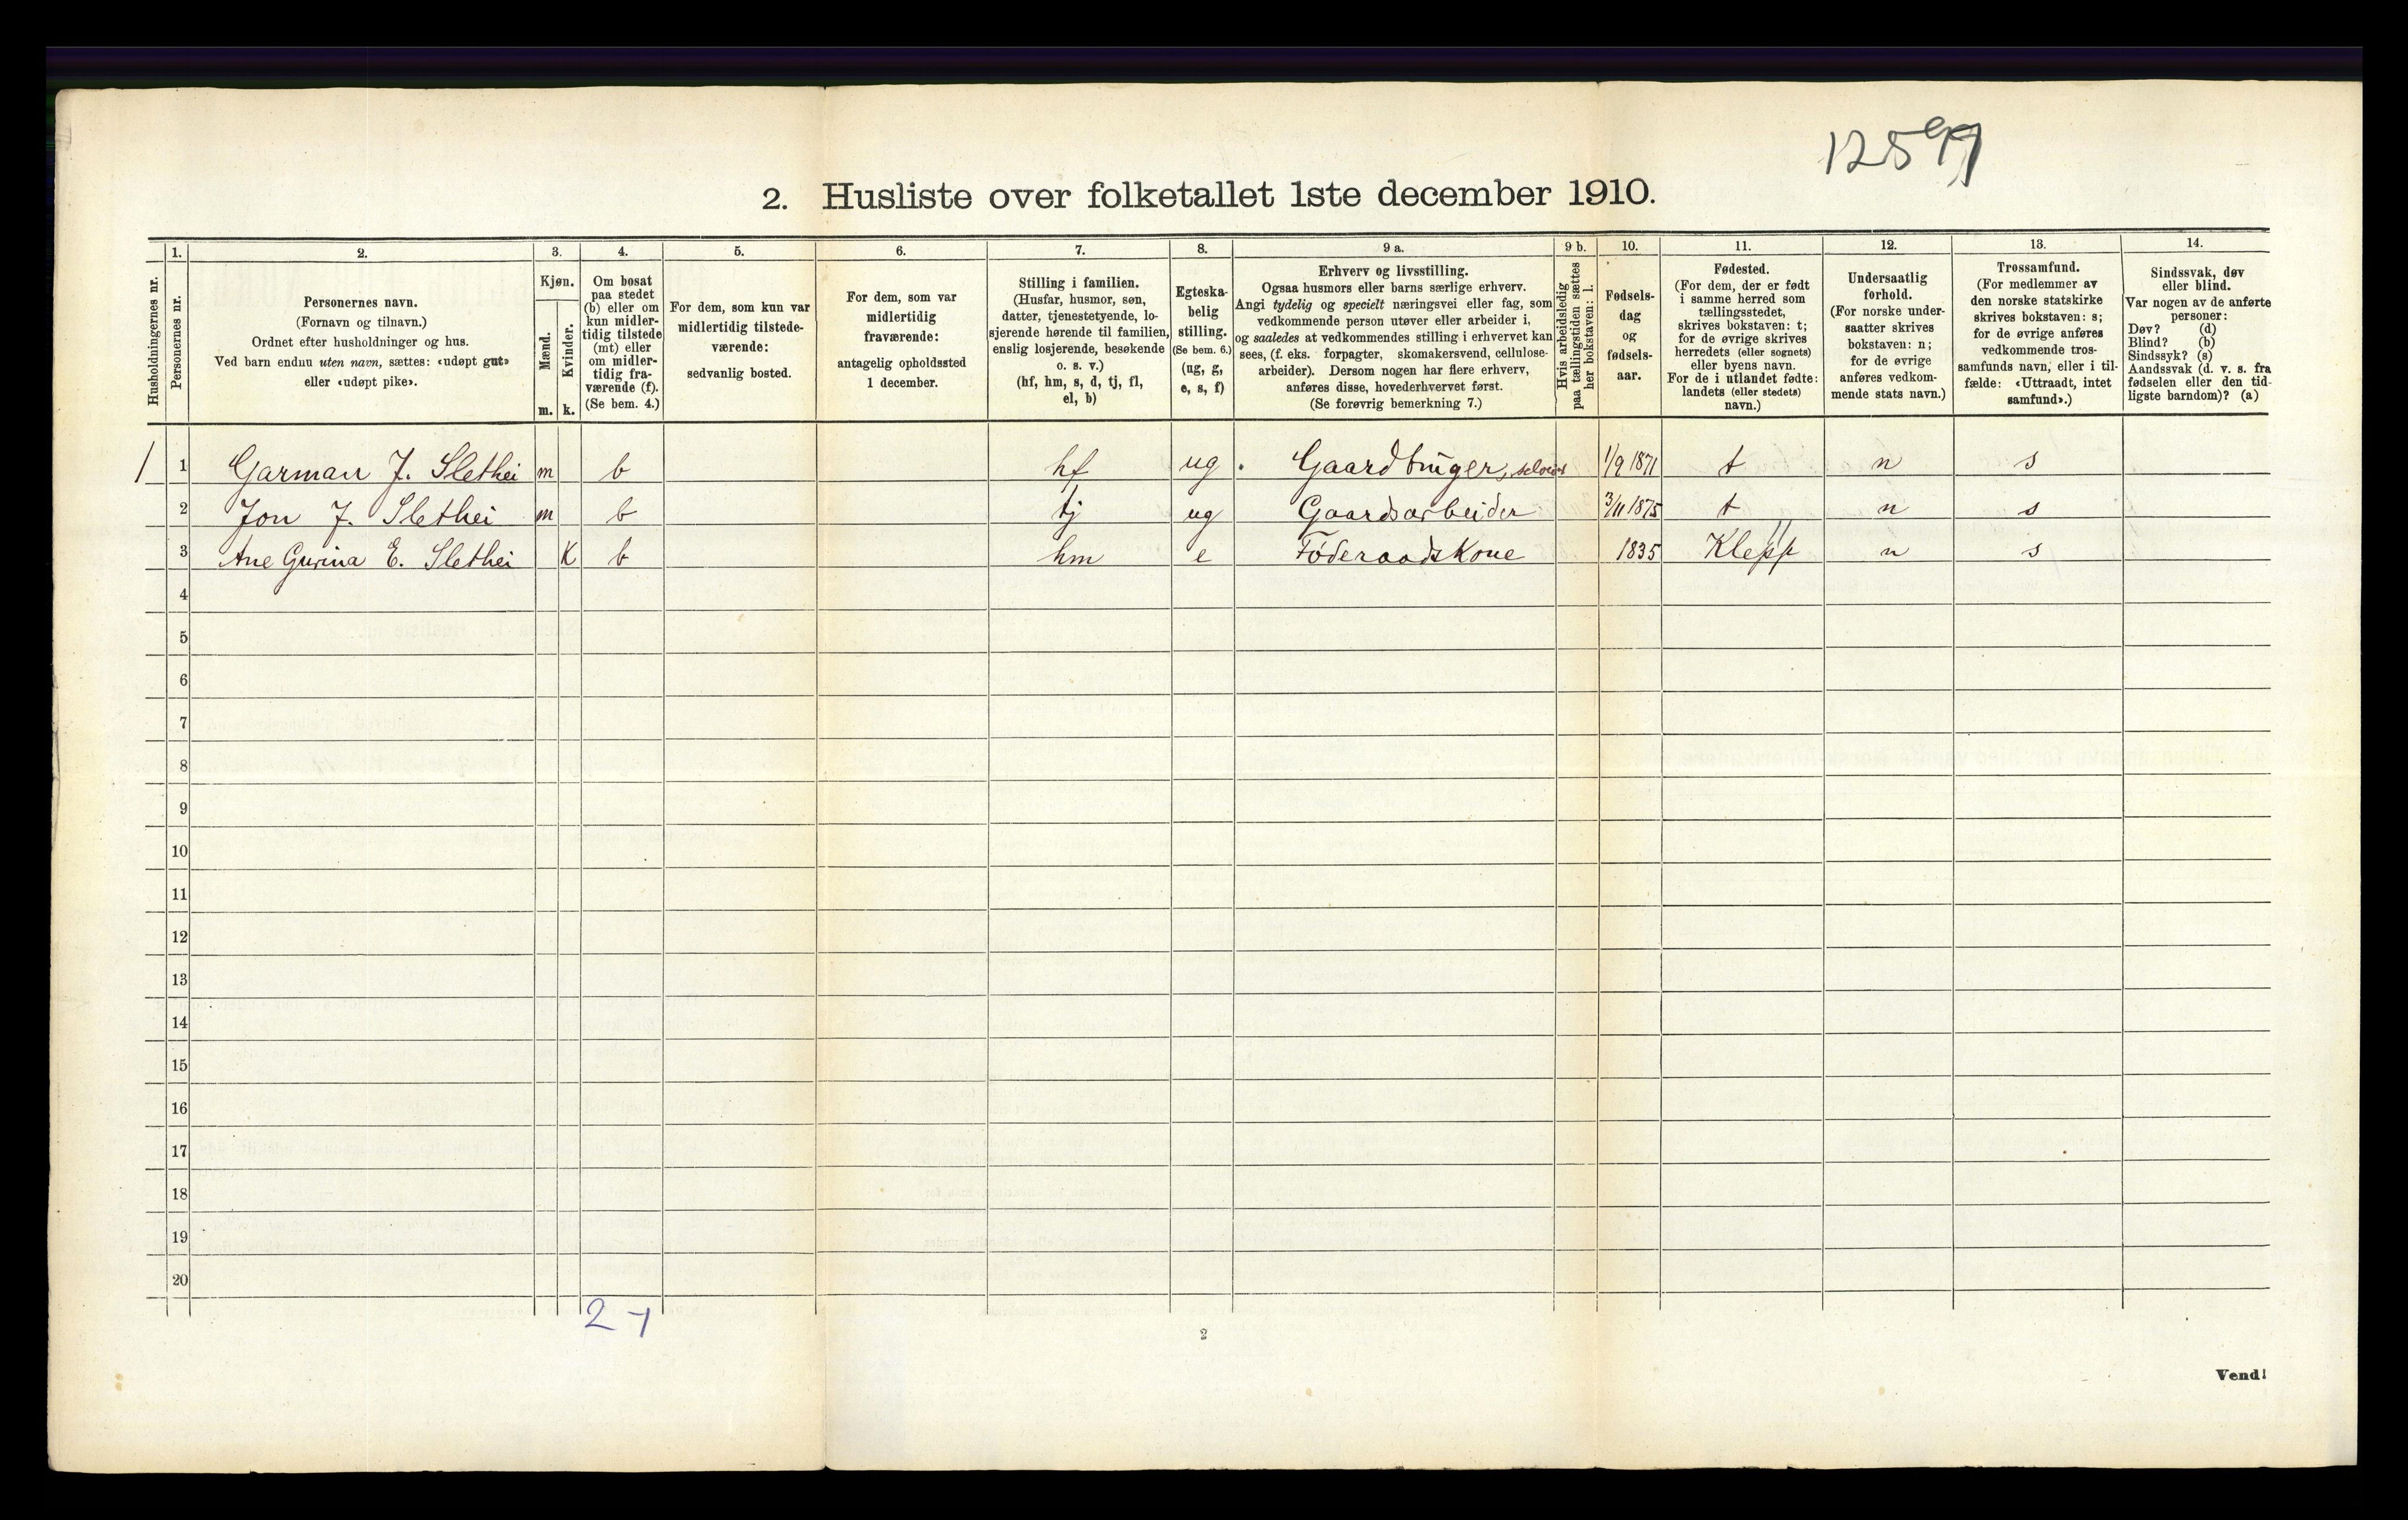 2. Husliste over folketallet 1ste december 1910.
Husholdningernes nr.
1.
Personernes nr.
2.
Personernes navn.
(Fornavn og tilnavn.)
Ordnet efter husholdninger og hus.
Ved barn endnu uten navn, sættes: «udøpt gut»
eller «udøpt pike».
3.
Kjøn.
Mænd.
Kvinder.
m. k.
4.
Om bosat
paa stedet
(b) eller om
kun midler-
tidig tilstede
(mt) eller
om midler-
tidig fra-
værende (f).
(Se bem. 4.)
5.
For dem, som kun var
midlertidig tilstede-
værende:
sedvanlig bosted.
6.
For dem, som var
midlertidig
fraværende:
antagelig opholdssted
1 december.
7.
Stilling i familien.
(Husfar, husmor, søn,
datter, tjenestetyende, lo-
sjerende hørende til familien,
enslig losjerende, besøkende
o. s. v.)
(hf, hm, s, d, tj, fl,
el, b)
8.
Egteska-
belig
stilling.
(Se bem. 6.)
(ug, g,
e, s, f)
9 a.
Erhverv og livsstilling.
Ogsaa husmors eller barns særlige erhverv.
Angi tydelig og specielt næringsvei eller fag, som
vedkommende person utøver eller arbeider i,
og saaledes at vedkommendes stilling i erhvervet kan
sees, (f. eks. forpagter, skomakersvend, cellulose-
arbeider). Dersom nogen har flere erhverv,
anføres disse, hovederhvervet først.
(Se forøvrig bemerkning 7.)
9 b.
Hvis arbeidsledig
paa tællingstiden sættes
her bokstaven: l.
10.
Fødsels-
dag
og
fødsels-
aar.
11.
Fødested.
(For dem, der er født
i samme herred som
tællingsstedet,
skrives bokstaven: t;
for de øvrige skrives
herredets (eller sognets)
eller byens navn.
For de i utlandet fødte:
landets (eller stedets)
navn.)
12.
Undersaatlig
forhold.
(For norske under-
saatter skrives
bokstaven: n;
for de øvrige
anføres vedkom-
mende stats navn.)
13.
Trossamfund.
(For medlemmer av
den norske statskirke
skrives bokstaven: s;
for de øvrige anføres
vedkommende tros-
samfunds navn, eller i til-
fælde: «Uttraadt, intet
samfund».)
14.
Sindssvak, døv
eller blind.
Var nogen av de anførte
personer:
Døv? (d)
Blind? (b)
Sindssyk? (s)
Aandssvak (d. v. s. fra
fødselen eller den tid-
ligste barndom)? (a)
1 1 Garman J. Slethei m b hf ug Gaardbruger, selveier 1/9 1871 t n s
2 Jon J. Slethei m b tj ug Gaardsarbeider 3/11 1875 t n s
3 Ane Gurina E. Slethei K b hm e Føderaadskone 1835 Klepp n s
4
5
6
7
8
9
10
11
12
13
14
15
16
17
18
19
20
2 - 1
2
Vend!